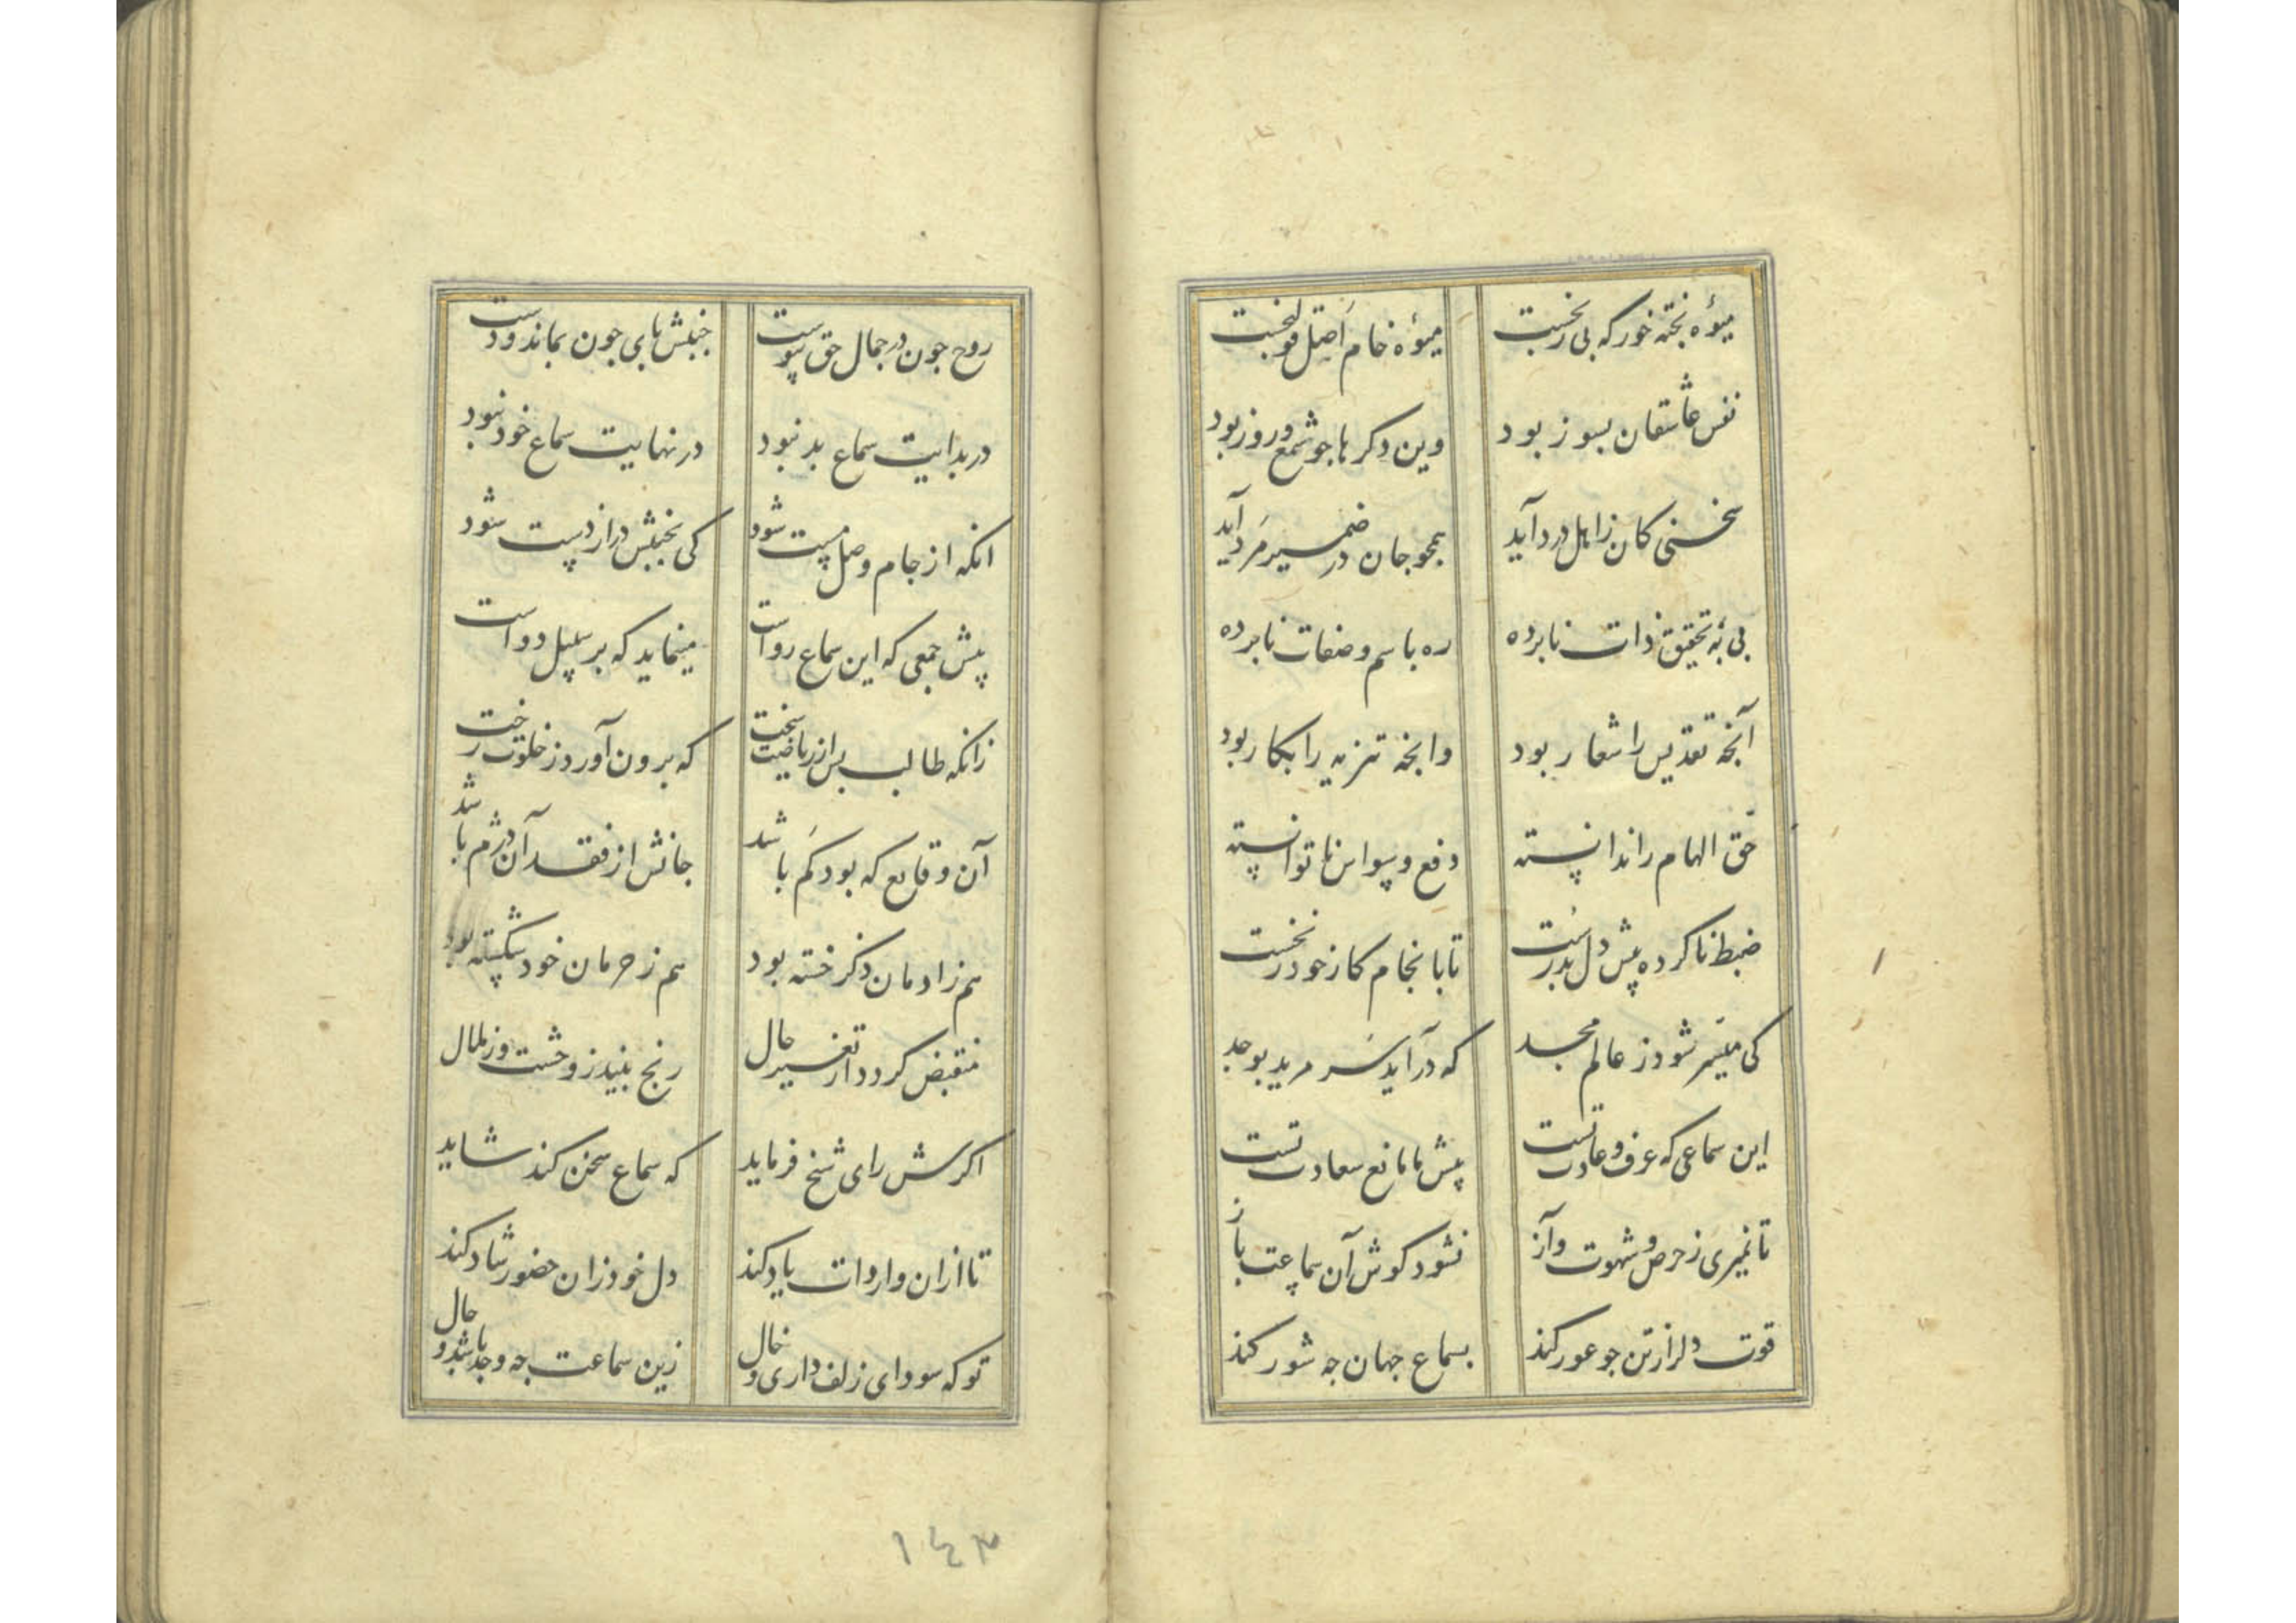 میوهٔ پخته خور که بی رنجست میوهٔ خام اصل قولنجست
نفس عاشقان بسوز بود وین دکرها جو شمع و روز بود
سخنی کان ز اهل درد آید همجو جان در ضمیر مرد آید
پی به تحقیق ذات نابرده ره باسم و صفات نابرده
آنجه تقدیس را شعار بود وانجه تنزیه را بکار بود
حق الهام را ندانسته دفع وسواس ناتوانسته
ضبط ناکرده پیش دل بدرست تا بانجام کار خود ز نخست
کی میسر شود ز عالم مجد که درآید سر مرید بوجد
این سماعی که عرف و عادتست پیش ما مانع سعادتست
تا نمیری ز حرص و شهوت و آز نشود کوش آن سماعت باز
قوت دل را ز تن جو عور کند بسماع جهان جه شور کند
روح جون در جمال حق پیوست جنبش پای جون بماند و دست
در بدایت سماع بد نبود در نهایت سماع خود نبود
انکه از جام وصل مست شود کی بجنبش دراز دست شود
پیش جمعی که این سماع رواست مینماید که بر سبیل دواست
زانکه طالب پس از ریاضت سخت که برون آورد ز خلوت رخت
آن وقایع که بود کم باشد جانش از فقد آن دژم باشد
هم ز ادمان ذکر خسته بود هم ز حرمان خود شکسته بود
منقبض کردد از تغیر حال رنج بیند ز وحشت و ز ملال
اکرش رای شیخ فرماید که سماع سخن کند شاید
تا ازان واردات یاد کند دل خود زان حضور شاد کند
تو که سودای زلف داری و خال زین سماعت جه وجد باشد و حال
۱۴۳